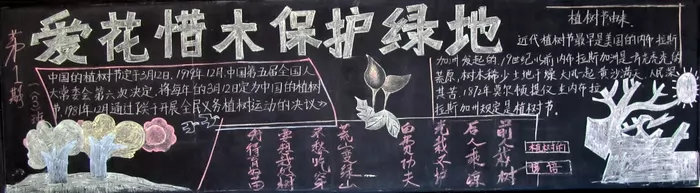 爱花惜木保护绿地
第1期
(8)班
中国的植树节定于3月12日,1979年12月.中国第五届全国人
大常委会第六次决定,将每年的3月12定为中国的植树
节.1981年12月通过《关于开展全民义务植树运动的决议》
植树节由来.
近代植树节最早是美国的内布拉斯
加州发起的,19世纪以前内布拉斯加州是一片光秃秃的
荒原,树木稀少土地干燥大风一起黄沙满天,人民深
受其苦.1872年莫尔顿提议在内布拉
拉斯加州规定是植树节.
前人栽树
后人乘凉
光栽不护
白费功夫
荒山变绿山
不愁吃穿
要想
植树的